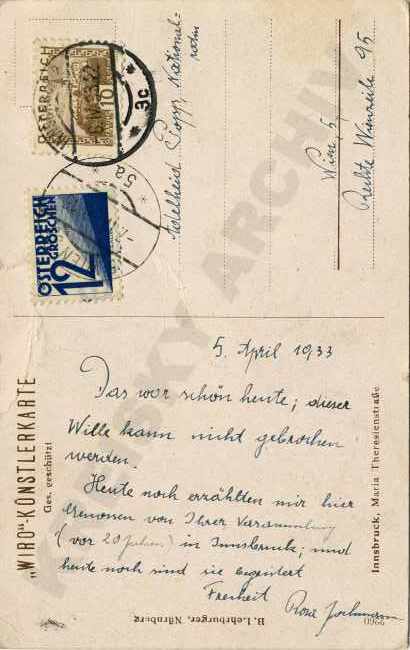 5. April 1933
Das war schön heute; dieser
Wille kann nicht gebrochen
werden.
Heute noch erzählten mir hier
Genossen von Ihrer Versammlung
(vor 20 Jahren) in Innsbruck; und
heute noch sind sie begeistert
Freiheit
Rosa Jochmann
Adelheid Popp National-
rätin
Wien, 5,
Rechte Wienzeile 95
„WIRO“-KÜNSTLERKARTE
Ges. geschützt
Innsbruck, Maria Theresienstraße
B. Lehrburger, Nürnberg
2960
ÖSTERREICH
10
3c
ÖSTERREICH
GROSCHEN
12
5a
KREISKY ARCHIV